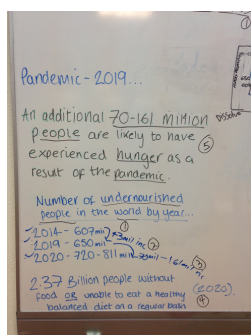 ①
Pandemic - 2019...
An additional 70-161 million
people are likely to have
experienced hunger as a
⑤
result of the pandemic.
Number of undernourished
people in the world by year...
①
2014 - 607mil
2019 - 650mil
②
2020 - 720 - 811 mil
③
2.37 Billion people without
(2020).
food OR unable to eat a healthy
balanced diet on a regular basis
④